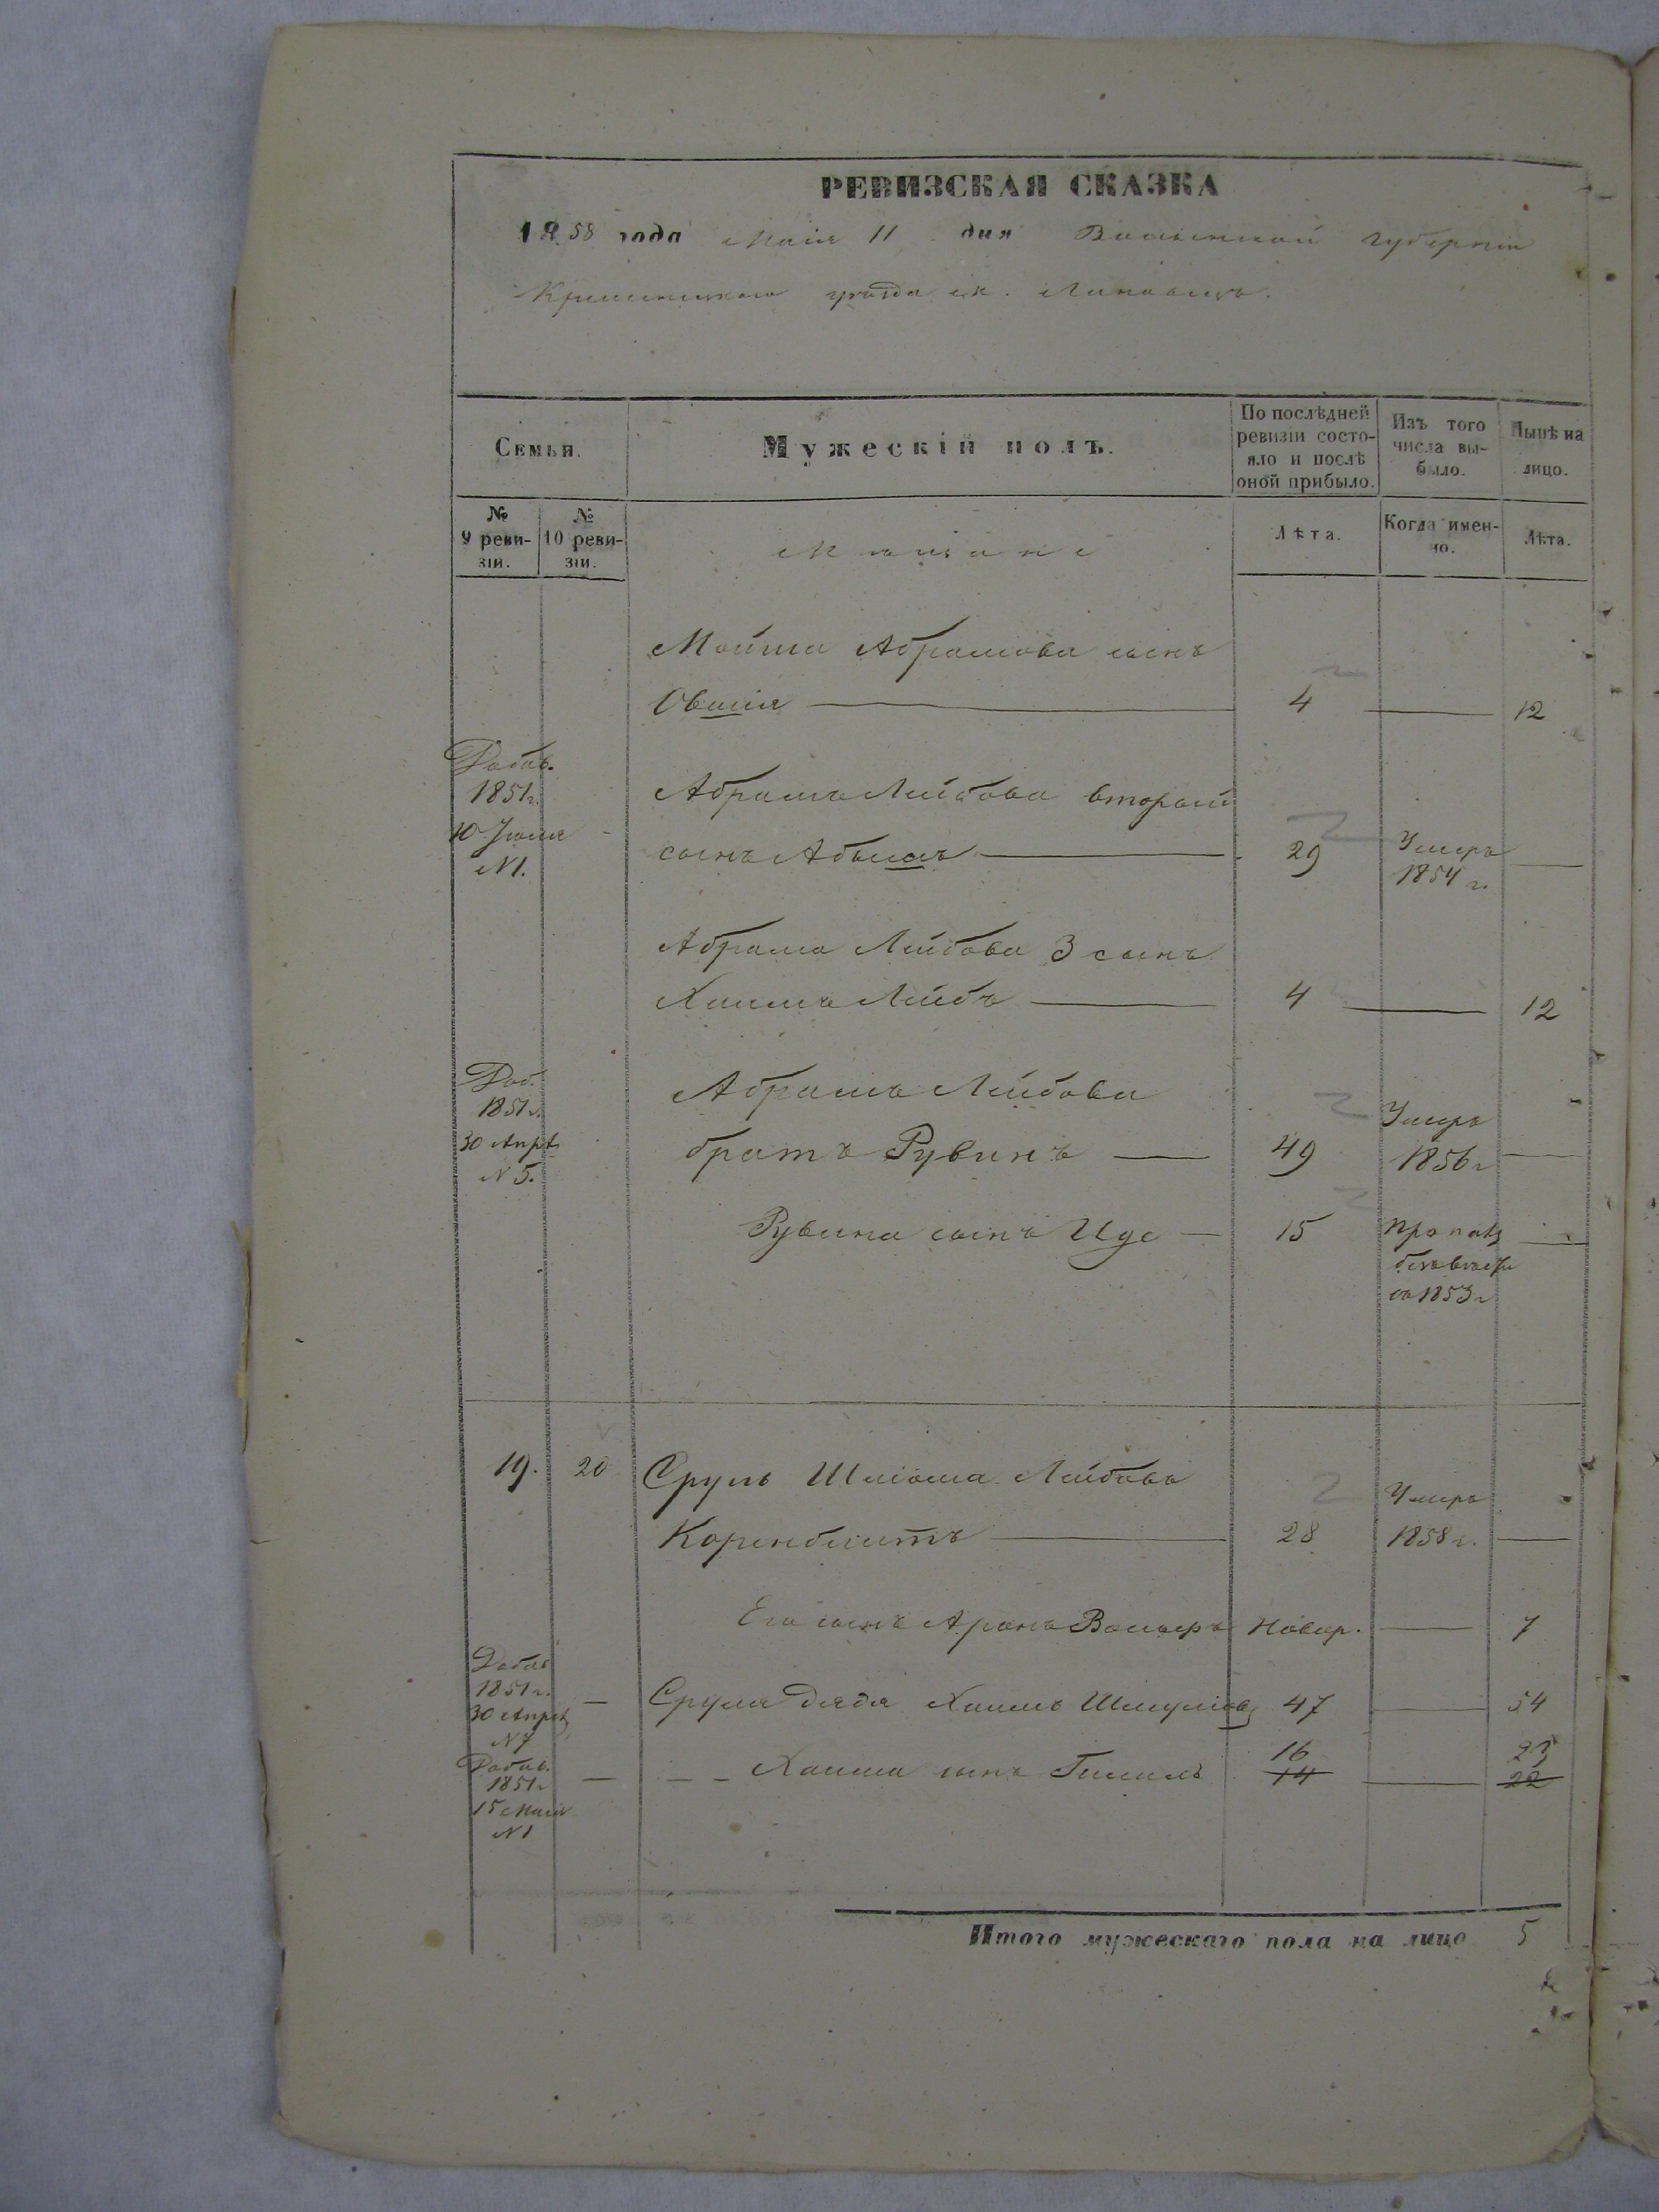 РЕВИЗСКАЯ СКАЗКА
1858 года Маія 11 дня Волынской губерніи
Кременецкого уезда м.
Семьи.
Мужескій полъ.
По послѣдней ревизіи состояло и послѣ оной прибыло.
Изъ того числа выбыло.
Нынѣ на лицо.
№ 9 ревизіи.
№ 10 ревизіи.
Мещане
Лѣта.
Когда именно.
Лѣта.
Мойша Абрамова сынъ
Овшія 4 12
Добав.
1851 г.
10 Іюня
N 1.
Абрама Лейбова второй
сынъ 29 Умеръ 1854 г.
Абрама Лейбова 3 сынъ
Хаимъ Лейбъ 4 12
Доб.
1851 г.
30 Апрѣ
N 5.
Абрама Лейбова
братъ Рувинъ 49 Умеръ 1856 г
Рувина сынъ Иде 15 Пропалъ безъ вѣсти 1853 г
19. 20 Сруль Шліома Лейбовъ
Коренблитъ 28 Умеръ 1858 г.
Его сынъ Аронъ Вольфъ Новор. 7
Добав
1851 г.
30 Апрѣ
N 7
— Сруля дядя Хаимъ Шмуліов 47 54
Добав.
1851 г
15 Маія
N 1
— Хаима сынъ 16 14 23 22
Итого мужескаго пола на лицо 5